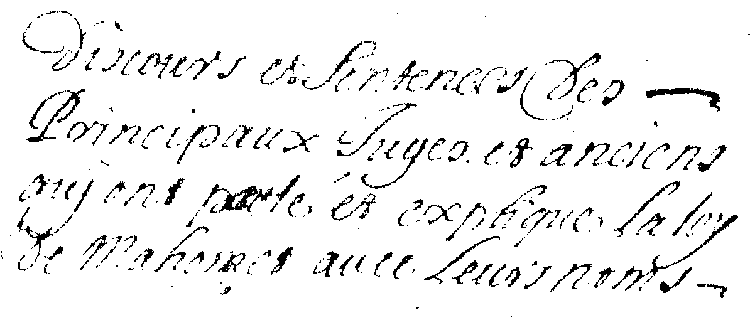 Discours et Sentences Des
Principaux Juges et anciens
quj ont parlé et explique La loy
de Mahomet avec Leurs noms